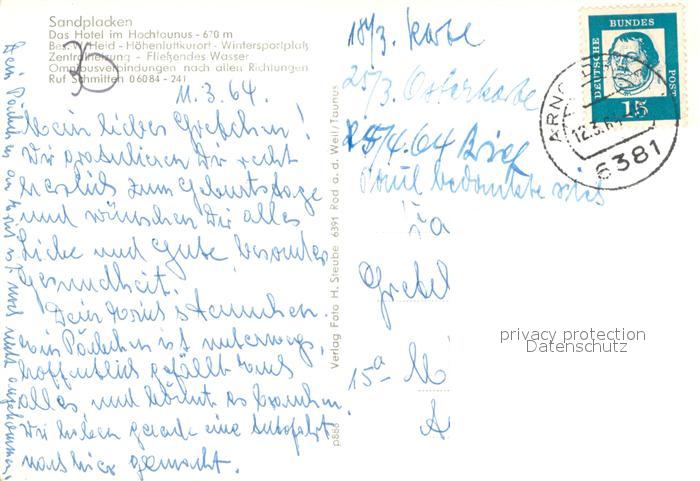 Sandplacken
Das Hotel im Hochtaunus - 670 m
Bes. W. Heid - Höhenluftkurort - Wintersportplatz
Zentralheizung - Fließendes Wasser
Omnibusverbindungen nach allen Richtungen
Ruf Schmitten 06084 - 241
11.3.64.
Mein liebes Gretchen!
Wir gratulieren Dir recht
herzlich zum Geburtstage
und wünschen Dir alles
Liebe und Gute besonders
Gesundheit.
Dein
ein Päckchen ist unterwegs,
hoffentlich gefällt
alles und könnt es brauchen.
Wir haben gerade eine Autofahrt
nach hier gemacht.
Dein Päckchen an ist noch nicht angekommen.
Verlag Foto H. Steube 6391 Rod a. d. Weil/Taunus
p888
18/3. Karte
25/3. Osterkarte
25/4.64 Brief
bedankte sich
Gretel
15a
DEUTSCHE BUNDESPOST
15
12.3.64
6381
privacy protection
Datenschutz